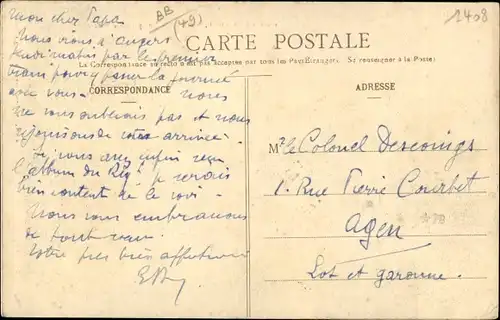 mon cher Papa
BB
(49)
1408
CARTE POSTALE
La Correspondance au recto n'est pas acceptée par tous les Pays Étrangers. Se renseigner à la Poste.
CORRESPONDANCE
ADRESSE
Nous irons à Angers
jeudi matin par le premier
train pour y passer la journée
avec vous. Nous
ne vous oublions pas et nous
réjouissons de votre arrivée.
Si vous avez enfin reçu
l'album du Rég^t je serais
bien content de le voir.
Nous vous embrassons
de tout cœur.
Votre très bien affectionné
Mr le Colonel Descoings
1. Rue Pierre Courbet
Agen
Lot et garonne.